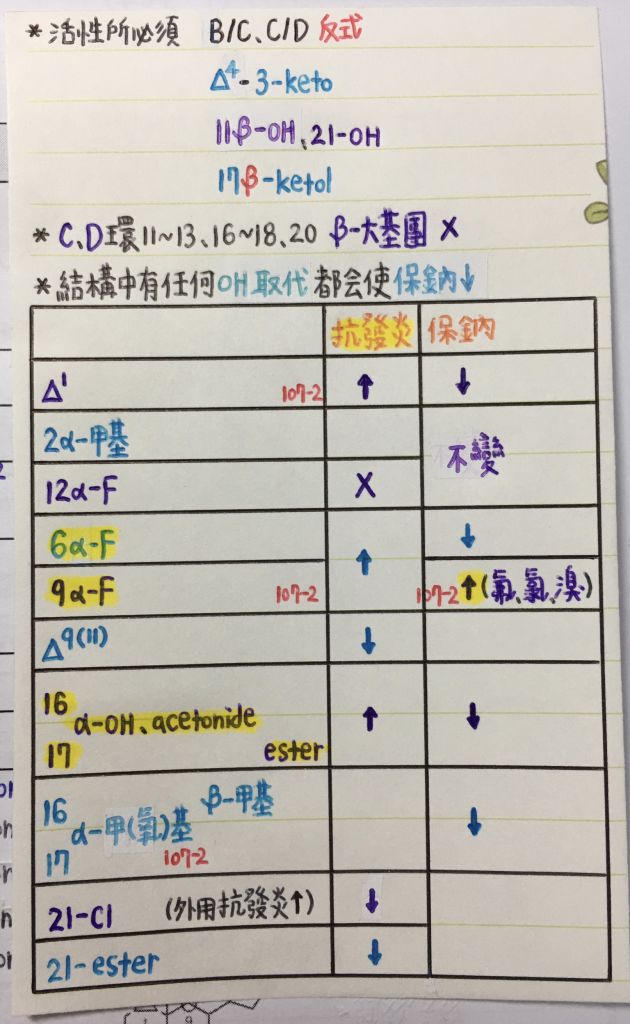 * 活性所必須 B/C、C/D 反式
Δ⁴-3-keto
11β-OH、21-OH
17β-ketol
* C,D環11~13、16~18、20 β-大基團 X
* 結構中有任何OH取代 都会使 保鈉↓
抗發炎 保鈉
Δ¹ 107-2 ↑ ↓
2α-甲基
不變
12α-F X
6α-F ↓
↑
9α-F 107-2 107-2 ↑(氟、氯、溴)
Δ⁹⁽¹¹⁾ ↓
16
α-OH、acetonide ↑ ↓
17 ester
16 β-甲基
α-甲(氧)基 ↓
17 107-2
21-Cl (外用抗發炎↑) ↓
21-ester ↓